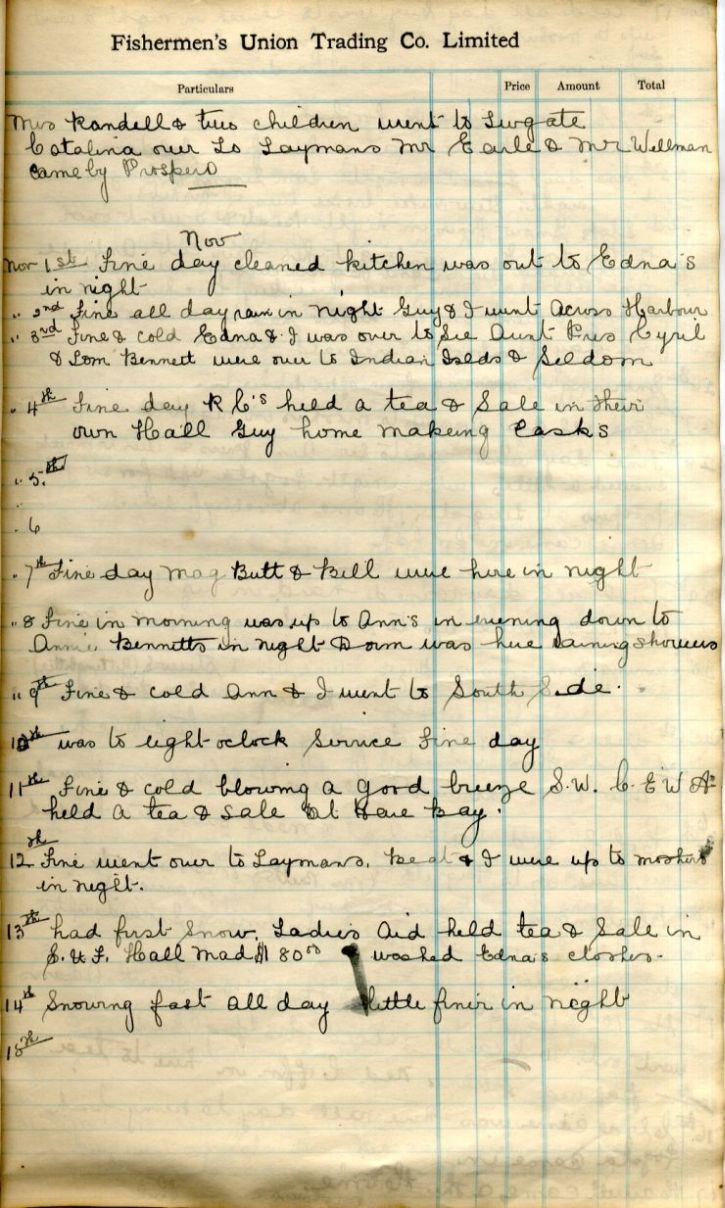 Fishermen's Union Trading Co. Limited
Particulars Price Amount Total
Mrs Randell & two children went to Lewgate
Catalina over to Laymans Mr Earle & Mr Wellman
came by Prospero
Nov
Nov 1st Fine day cleaned kitchen was out to Edna's
in night
" 2nd Fine all day rain in night Guy & I went Across Harbour
" 3rd Fine & cold Edna & I was over to See Aunt Pris Cyril
& Tom Bennett were over to Indian Islds & Seldom
" 4th Fine day R C's held a tea & Sale in their
own Hall Guy home makeing Casks
" 5th
" 6
" 7th Fine day Mag Butt & Bill were here in night
" 8 Fine in morning was up to Ann's in evening down to
Annie Bennetts in night & was here raining showers
" 9th Fine & cold Ann & I went to South Side.
10th was to eight oclock Service Fine day
11th Fine & cold blowing a good breeze S.W. C. E W A
held a tea & sale at Hare Bay.
12th Fine went over to Laymans. Beat & I were up to
in night.
13th had first Snow. Ladies Aid held tea & Sale in
S. U. F. Hall Mad $180.00 washed Edna's clothes.
14th Snowing fast all day little finer in night
15th